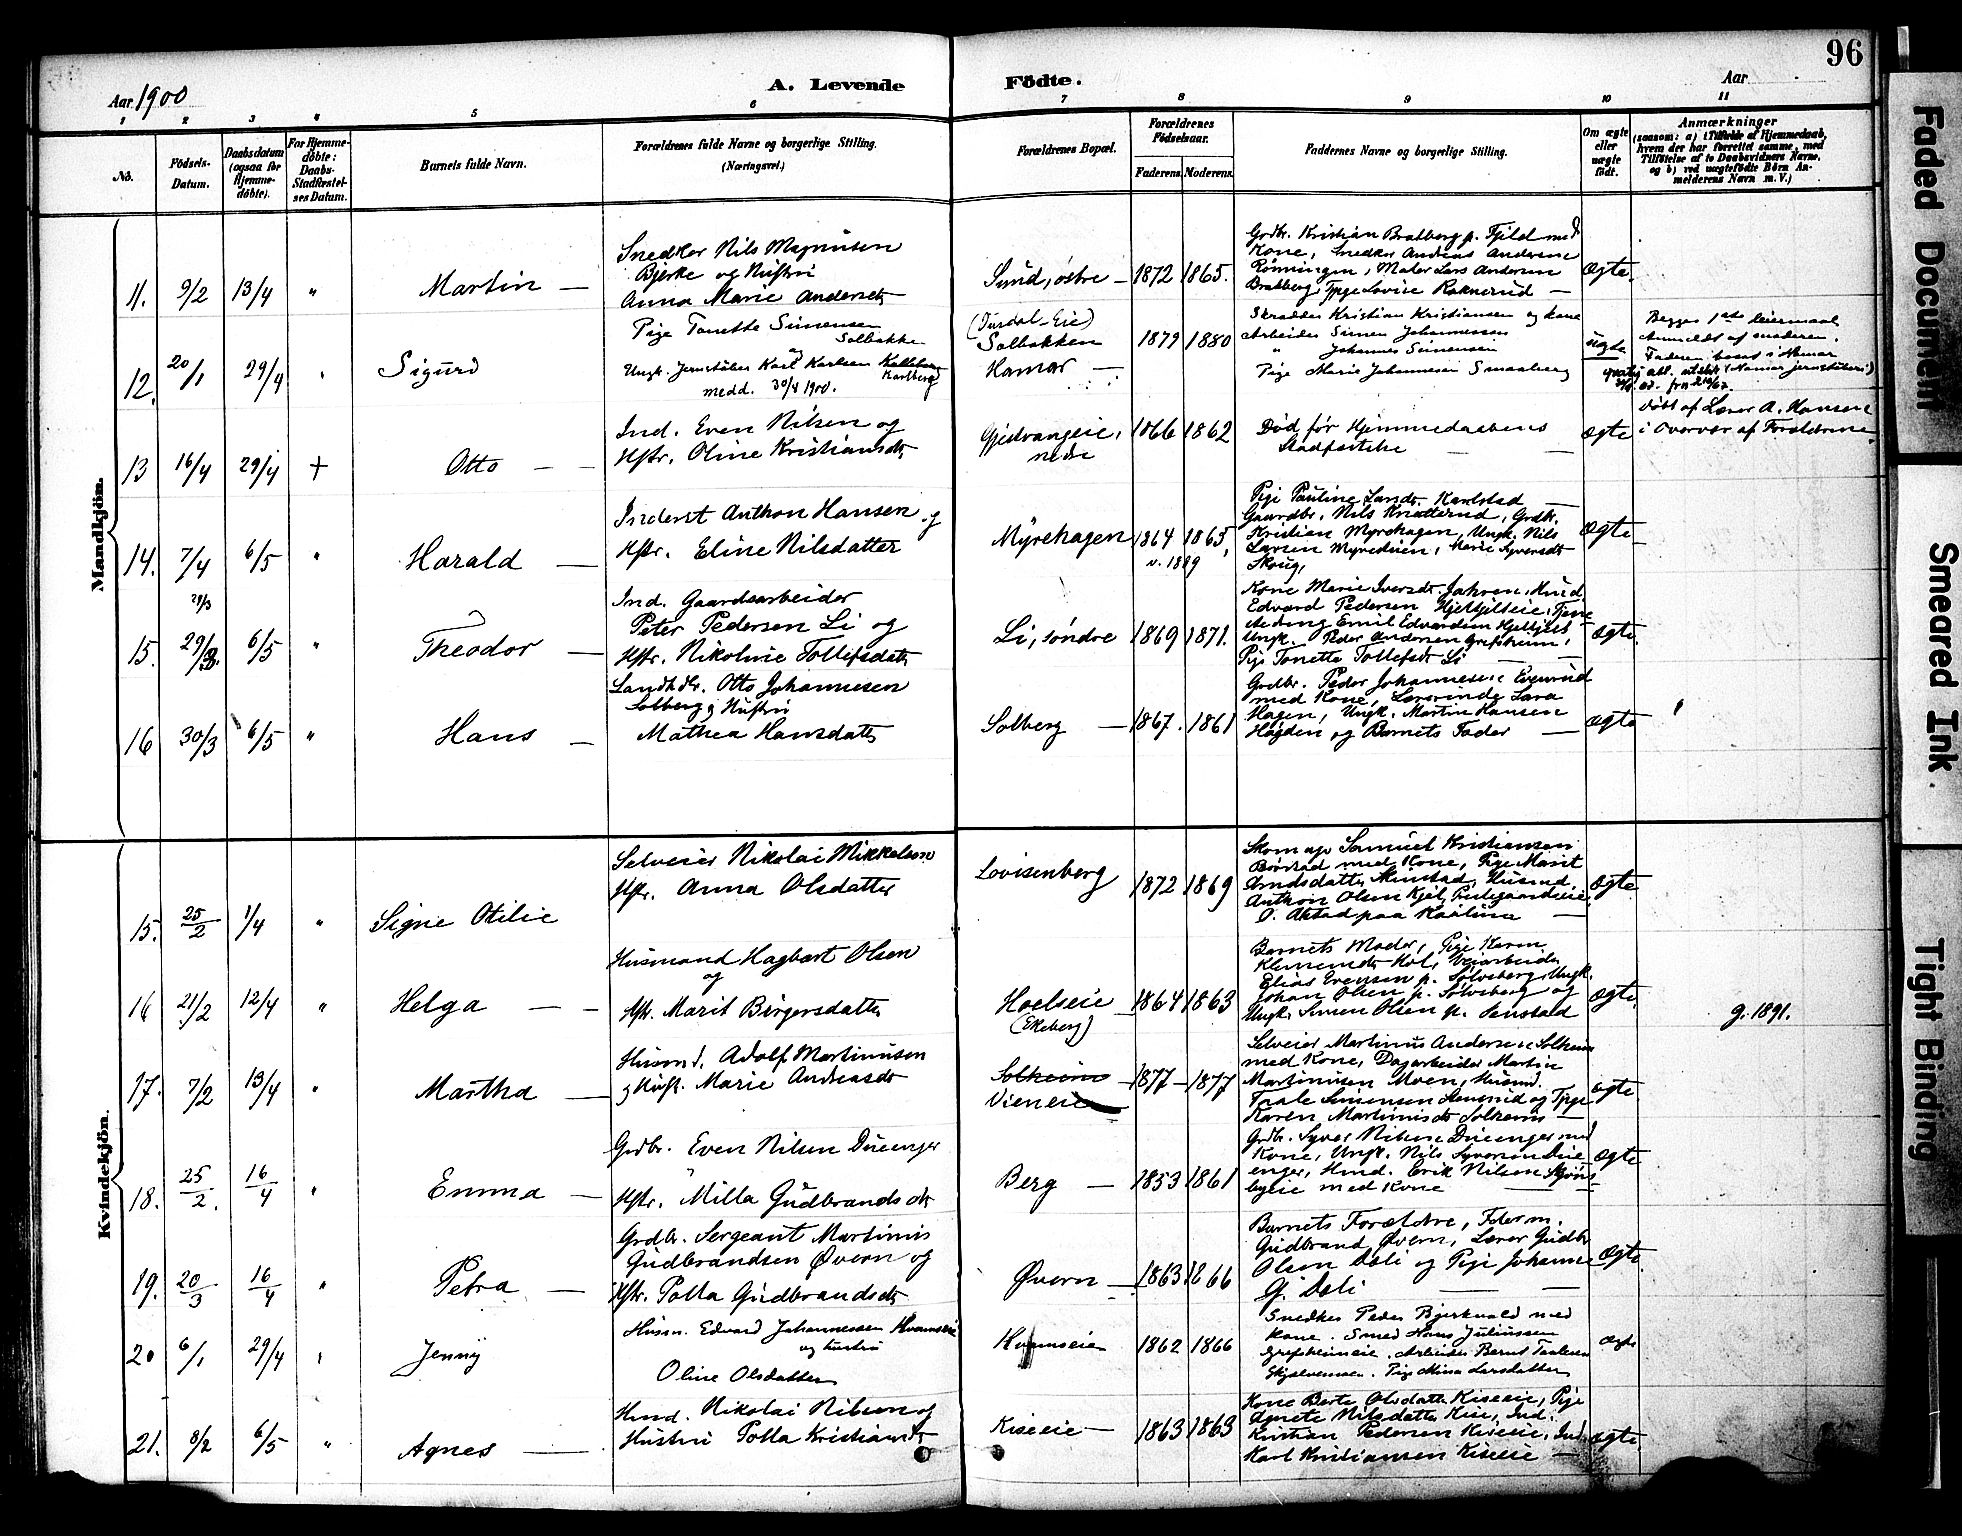 96
Aar 1900
A. Levende Födte.
Aar
1 2 3 4 5 6 7 8 9 10 11
No.
Födsels-Datum.
Daabsdatum (ogsaa for Hjemmedöbte).
For Hjemmedöbte: Daabs-Stadfæstelses Datum.
Barnets fulde Navn.
Forældrenes fulde Navne og borgerlige Stilling. (Næringsvei.)
Forældrenes Bopæl.
Forældrenes Födselsaar.
Faderens. Moderens.
Faddernes Navne og borgerlige Stilling.
Om ægte eller uægte födt.
Anmærkninger
(saasom: a) i Tilfælde af Hjemmedaab, hvem der har forrettet samme, med Tilföielse af to Daabsvidners Navne, og b) ved uægtefödte Börn Anmelderens Navn m. V.)
Mandkjön.
11. 9/2 13/4 " Martin —
Snedker Nils Magnusen
Bjerke og Hustru
Anna Marie Andersdt.
Sund, østre — 1872 1865.
Godbr. Kristian Bratberg p. Fjeld med
Kone, Snedker Andreas Andersen
Rønningen, Maler Lars Andersen
Bratberg, Tpge Lovise Raknerud —
Ægte
12. 20/1 29/4 " Sigurd
Pige Tonette Simensen
Solbakke
og
Ungk. Jernstøber Karl Karlsen
Karlberg
medd. 30/4 1900.
Solbakken
Hamar — 1879 1880
Skrædder Kristian Kristiansen og kone
Arbeider Simen Johannessen
" Johannes Simensen
Pige Marie Johannesen Smaaberg
uægte
Begges 1ste leiermaal
Anmeldt af moderen.
Faderen bosat i Hamar
13 16/4 29/4 + Otto — —
Ind. Even Nilsen og
Hstr. Oline Kristiansdt.
Gjedvangeie, nedre 1866 1862
Død før Hjemmedaabens
Stadfæstelse — —
ægte
Døbt af Lærer A. Hansen
i Overvær af Forældrene.
14. 7/4 6/5 " Harald —
Inderst Anthon Hansen og
Hstr. Eline Nilsdatter
Myrehagen 1864 1865,
v. 1889
Pige Pauline Larsdt. Karlstad —
Gaardbr. Nils Knatterud, Grdbr.
Kristian Myrehagen, Ungk. Nils
Larsen Myreduen, Marie Syversdt
Skoug,
Ægte
29/3
15. 29/3. 6/5 " Theodor —
Ind. Gaardsarbeider
Peter Pedersen Li og
Hstr. Nikoline Tollefsdatt.
Li, søndre 1869 1871.
Kone Marie Iversdt. Jahren, Hmd.
Edvard Pedersen
Emil Edvardsen
Ungk. Peder Andersen Grefsheim,
Pige Tonette Tollefsdt. Li — —
Ægte.
16 30/3 6/5 " Hans —
Landhdlr. Otto Johannesen
Solberg og Hustru
Mathea Hansdatt.
Solberg — 1867. 1861
Grdbr. Peder Johannesen
med Kone, Lærerinde Lara
Hagen, Ungk. Martin Hansen
Høgden og Barnets Fader —
Ægte
Kvindekjön.
15. 25/2 1/4 " Signe Otilie
Selveier Nikolai Mikkelsen
Hstr. Anna Olsdatter
Lovisenberg 1872 1869
Skomag. Samuel Kristiansen
Børstad med Kone, Pige Marit
Husmd.
Anthon Olsen
Ægte
16 21/2 12/4 " Helga — —
Husmand Hagbart Olsen
og
Hstr. Marit Birgersdatt.
Hoelseie
(Ekeberg) 1864 1863
Barnets Moder, Pige Karen
Klemmedt. Hol, Veiarbeider
Elias Evensen p. Sølvsberg, Ungk.
Johan Olsen p. Sølvsberg og
Ungk. Simen Olsen p. Senstad
Ægte.
g. 1891.
17. 7/2 13/4 " Martha —
Husmd. Adolf Martinusen
og Husfr. Marie Andreasdt
Solheim
Vieneie 1877 — 1877
Selveier Martinus Andersen Solheim
med Kone, Dagarbeider Martin
Martinusen Moen, Husmd.
og Tpge
Karen Martinusdt Solheim —
ægte
18. 25/2. 16/4 " Emma —
Grdbr. Even Nilsen Dueenger
Hstr. Milla Gudbrandsdt.
Berg — 1853 1861
Grdbr. Syver Nilsen Dueenger med
Kone, Ungk. Nils Syversen Due-
enger, Hmd. Erik Nilsen
med Kone — —
Ægte
19. 20/3 16/4 " Petra —
Grdbr. Sergeant Martinus
Gudbrandsen Øvern og
Hstr. Polla Gudbrandsdt.
Øvern — 1863 1866
Barnets Forældre,
Gudbrand Øvern, Lærer Gudbr.
Olsen Dæli og Pige Johanne
G. Dæli — —
Ægte
20 6/1 29/4 " Jenny
Husm. Edvard Johannessen Hvamseie
og hustru
Oline Olsdatter
Hvamseie 1862 1866
Snedker Peder Bjerkvold med
kone. Smed Hans Juliussen
Grefsheimeie. Arbeider Bernt Taalesen
Pige Mina Larsdatter
Ægte
21. 8/2 6/5 " Agnes —
Hmd. Nikolai Nilsen og
Hustru Polla Kristiansdt
Kiseeie — 1863 1863
Kone Berte Olsdatt. Kiseeie, Pige
Agnete Nilsdatt. Kise, Ind.
Kristian Pedersen Kiseeie, Ind.
Karl Kristiansen Kiseeie —
Ægte
Faded Document
Smeared Ink.
Tight Binding